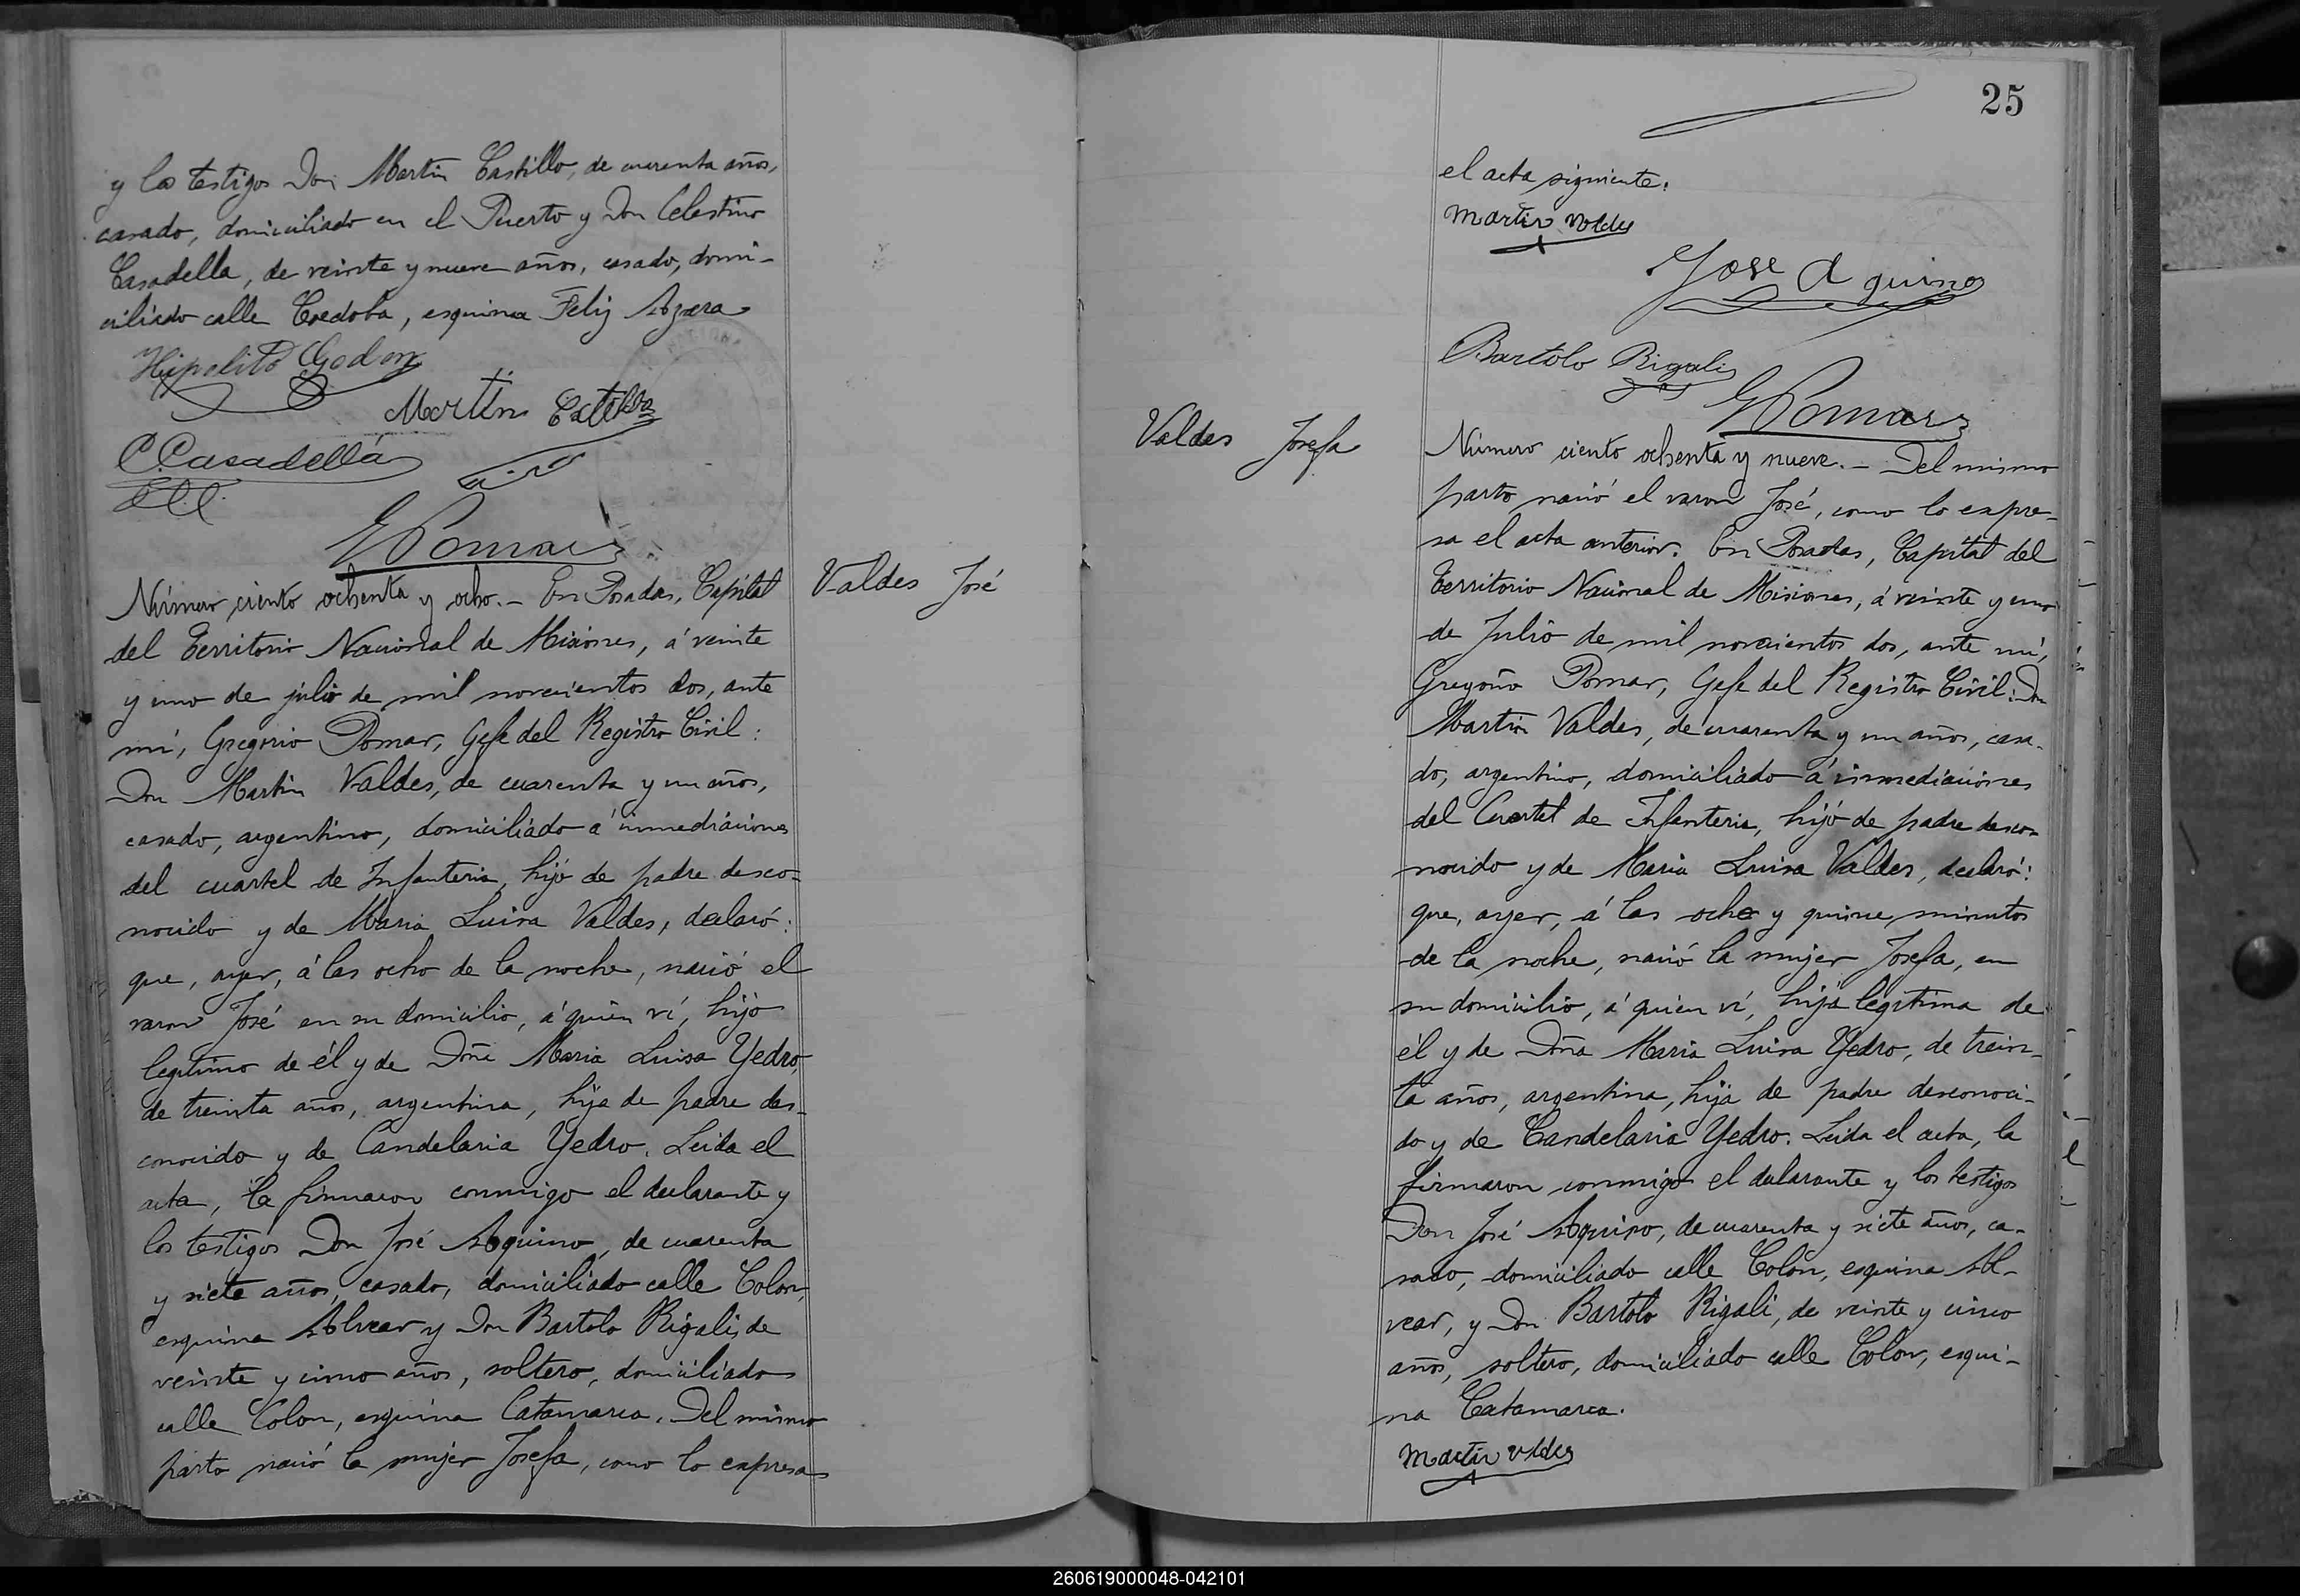 y los testigos Don Martin Castillo, de cuarenta años,
casado, domiciliado en el Puerto y Don Celestino
Casadella, de veinte y nueve años, casado, domi-
ciliado calle Cordoba, esquina Feliz Azara
Hipolito Godoy
Martin Castillo
C. Casadella
G Pomar
Número ciento ochenta y ocho.- En Posadas, Capital
del Territorio Nacional de Misiones, á veinte
y uno de julio de mil novecientos dos, ante
mí, Gregorio Pomar, Gefe del Registro Civil:
Don Martin Valdes, de cuarenta y un años,
casado, argentino, domiciliado á inmediaciones
del cuartel de Infanteria, hijo de padre desco-
nocido y de Maria Luisa Valdes, declaró:
que, ayer, á las ocho de la noche, nació el
varon José en su domicilio, á quien ví, hijo
legitimo de él y de Doña Maria Luisa Yedro,
de treinta años, argentina, hija de padre des-
conocido y de Candelaria Yedro. Leida el
acta, la firmaron conmigo el declarante y
los testigos Don José Aquino, de cuarenta
y siete años, casado, domiciliado calle Colon,
esquina Alvear y Don Bartolo Rigali, de
veinte y cinco años, soltero, domiciliado
calle Colon, esquina Catamarca. Del mismo
parto nació la mujer Josefa, como lo expresa
Valdes José
25
el acta siguiente.
Martin Valdes
Jose Aquino
Bartolo Rigali
G Pomar
Valdes Josefa
Número ciento ochenta y nueve.- Del mismo
parto nació el varon José, como lo expre-
sa el acta anterior. En Posadas, Capital del
Territorio Nacional de Misiones, á veinte y uno
de Julio de mil novecientos dos, ante mí,
Gregorio Pomar, Gefe del Registro Civil: Don
Martin Valdes, de cuarenta y un años, casa-
do, argentino, domiciliado á inmediaciones
del Cuartel de Infanteria, hijo de padre desco-
nocido y de Maria Luisa Valdes, declaró:
que, ayer, á las ocho y quince minutos
de la noche, nació la mujer Josefa, en
su domicilio, á quien ví, hija legitima de
él y de Doña Maria Luisa Yedro, de trein-
ta años, argentina, hija de padre desconoci-
do y de Candelaria Yedro. Leida el acta, la
firmaron conmigo el declarante y los testigos
Don José Aquino, de cuarenta y siete años, ca-
sado, domiciliado calle Colón, esquina Al-
vear, y Don Bartolo Rigali, de veinte y cinco
años, soltero, domiciliado calle Colon, esqui-
na Catamarca.
Martin Valdes
260619000048-042101